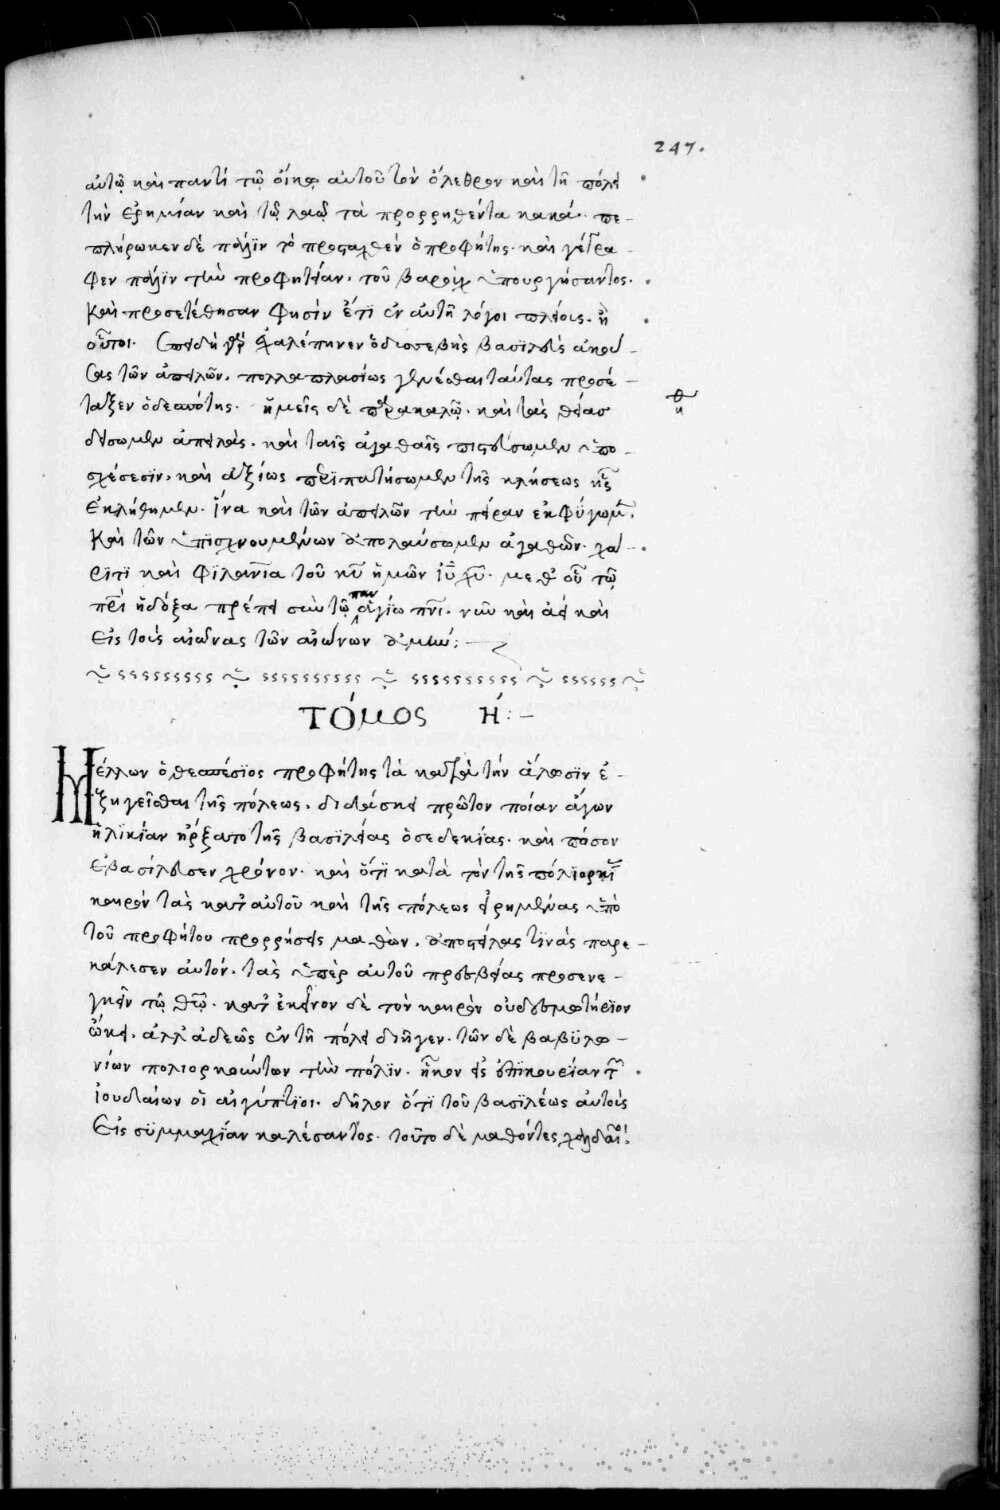 247.
αὐτῶ καὶ παντὶ τῶ οἴκω αὐτοῦ τὸν ὄλεθρον καὶ τῆ πόλει
τὴν ἐρημίαν καὶ τῶ λαῶ τὰ προρρηθέντα κακά. πε-
πλήρωκεν δὲ πάλϊν τὸ προσταχθὲν ὁ προφήτης. καὶ γέγρα-
φεν πάλϊν τὴν προφητείαν. τοῦ βαροὺχ ὑπουργήσαντος.
καὶ προσετέθησαν φησὶν ἔτϊ ἐν αὐτῆ λόγοι πλείοις. ἢ
οὗτοι. ἐπειδὴ γὰρ ἐχαλέπηνεν ὁ δυσσεβὴς βασϊλεὺς ἀκού-
σας τῶν ἀπειλῶν. πολλαπλασίως γενέσθαι ταύτας προσέ-
ταξεν ὁ δεσπότης. ἡμεῖς δὲ παρακαλῶ. καὶ τὰς θείας
δείσωμεν ἀπειλὰς. καὶ ταῖς ἀγαθαῖς πιστεύσωμεν ὑπο-
σχέσεσϊν. καὶ ἀξίως περϊπατήσωμεν τῆς κλήσεως ἧς
ἐκλήθημεν. ἵνα καὶ τῶν ἀπειλῶν τὴν πείραν ἐκφύγωμεν.
καὶ τῶν ὑπϊσχνουμένων ἀπολαύσωμεν ἀγαθῶν. χά-
ρϊτι καὶ φϊλανῖα τοῦ κυ ἡμῶν ιυ χυ. μεθ' οὗ τῶ
πρι ἡ δόξα πρέπει σὺν τῶ παναγίω πνι. νῦν καὶ ἀεὶ καὶ
εἰς τοὺς αἰῶνας τῶν αἰώνων ἀμήν:
ΤΟΜΟΣ Η:
Μέλλων ὁ θεσπέσϊος προφήτης τὰ κατὰ τὴν ἅλωσϊν ἐ-
ξηγεῖσθαι τῆς πόλεως. διδάσκει πρῶτον ποίαν ἄγων
ἡλϊκίαν ἤρξατο τῆς βασϊλείας ὁ σεδεκίας. καὶ πόσον
ἐβασίλευσεν χρόνον. καὶ ὅτϊ κατὰ τὸν τῆς πόλϊορκί
καιρὸν τὰς κατ' αὐτοῦ καὶ τῆς πόλεως εἰρημένας ὑπὸ
τοῦ προφήτου προρρήσεις μαθὼν. ἀποστείλας τϊνὰς παρε-
κάλεσεν αὐτόν. τὰς ὑπὲρ αὐτοῦ πρεσβείας προσενε-
γκεῖν τῶ θεῶ. κατ' ἐκεῖνον δὲ τὸν καιρὸν οὐ δεσμωτήριον
ὤκει. ἀλλ' ἀδεῶς ἐν τῆ πόλει διῆγεν. τῶν δὲ βαβϋλω-
νίων πολιορκούντων τὴν πόλϊν. ἧκον εἰς ἐπϊκουρίαν τῶν
ἰουδαίων οἱ αἰγύπτϊοι. δῆλον ὅτϊ τοῦ βασϊλέως αὐτοὺς
εἰς σϋμμαχίαν καλέσαντος. τοῦτο δὲ μαθόντες χαλδαῖοι: